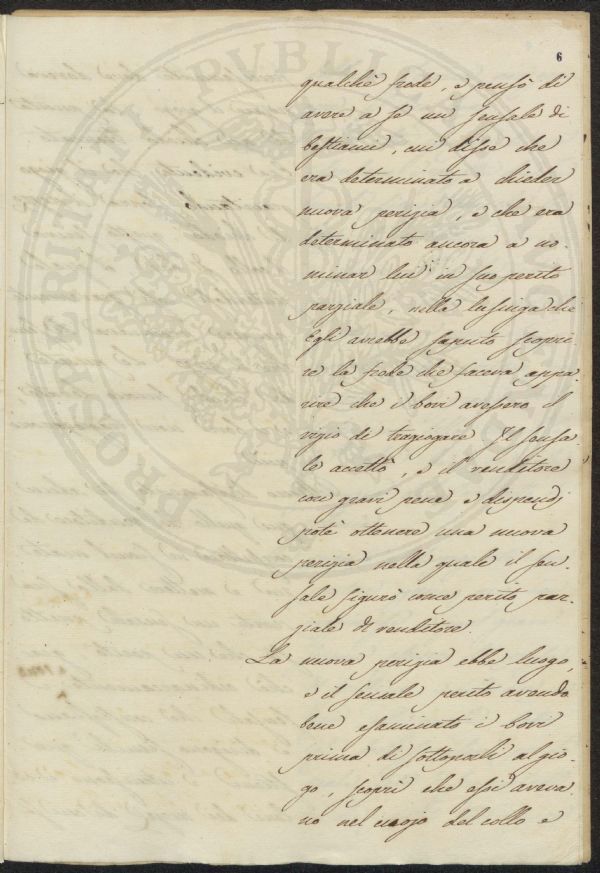 6
qualche frode, e pensò di
avere a se un sensale di
bestiami, cui disse che
era determinato a chieder
nuova perizia, e che era
determinato ancora a no-
minar lui in suo perito
parziale, nella lusinga che
Egli avrebbe saputo scopri-
re la frode che faceva appa-
rire che i bovi avessero il
vizio di tragiogare. Il sensa-
le accettò, e il venditore
con gravi pene e dispendj
potè ottenere una nuova
perizia nella quale il sen-
sale figurò come perito par-
ziale di venditore.
La nuova perizia ebbe luogo,
e il sensale perito avendo
bene esaminato i bovi
prima di sottoporli al gio-
go, scoprì che essi aveva-
no nel cuojo del collo e
PROSPERITATI PUBLICAE